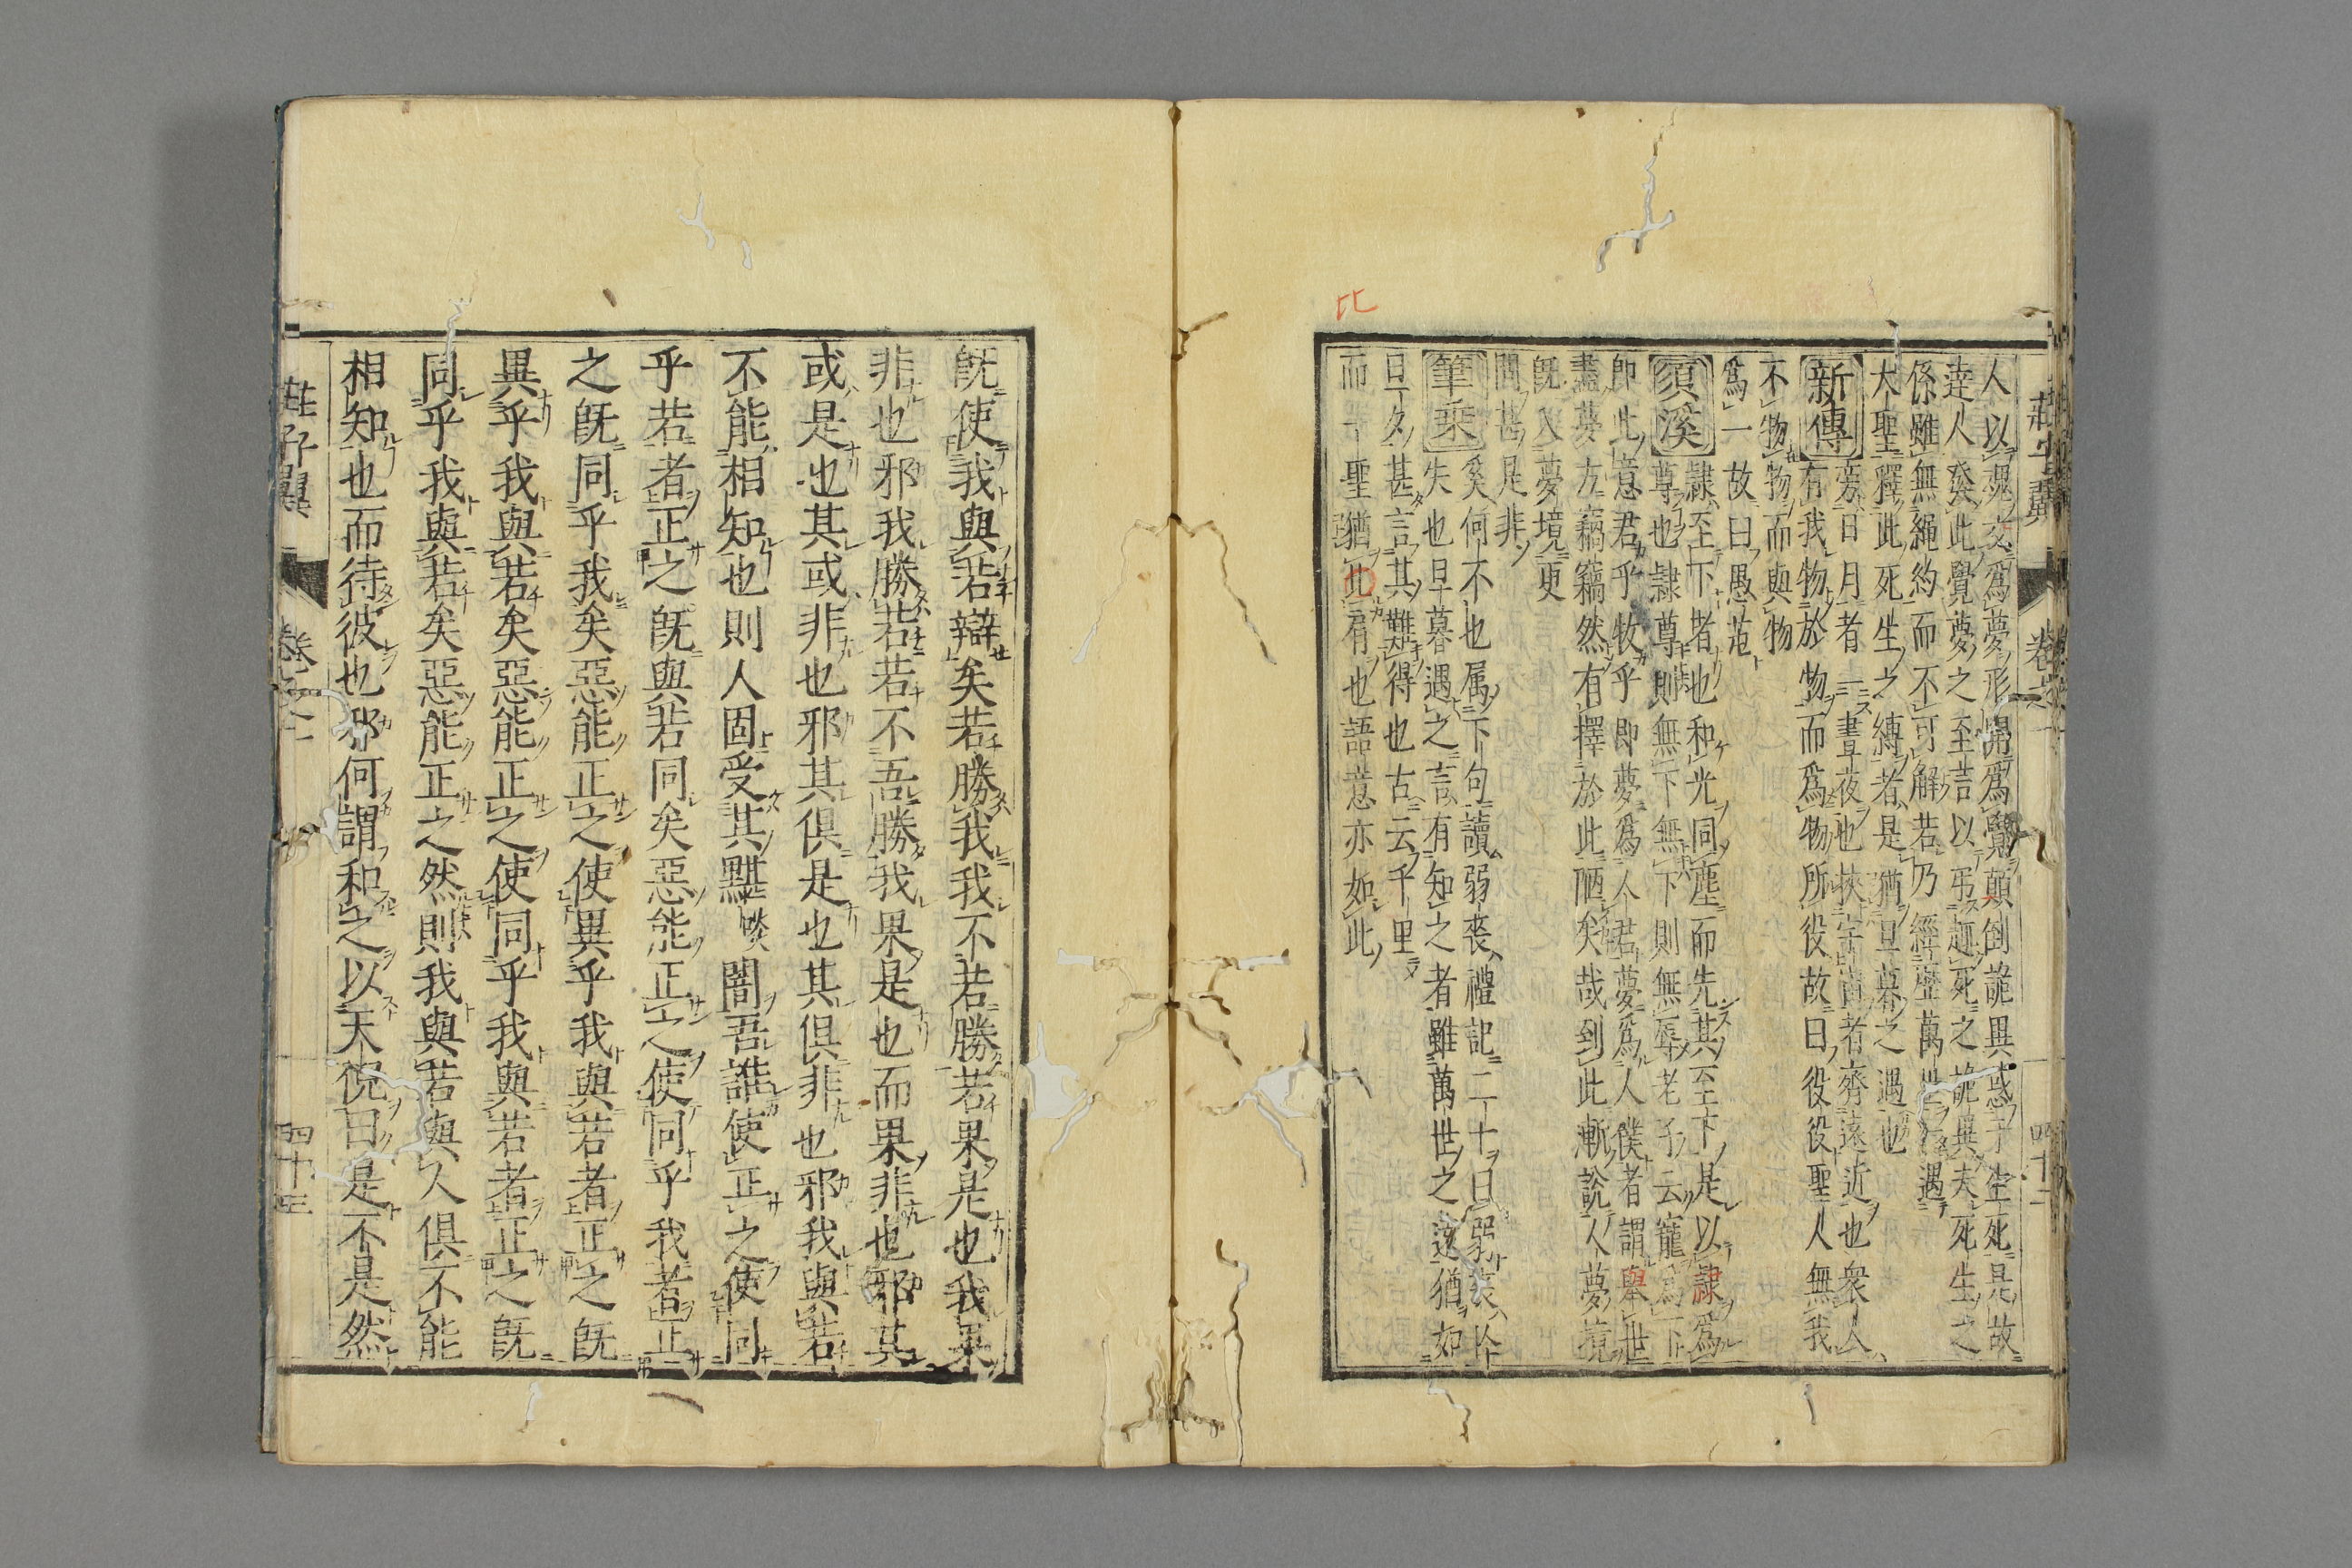 人以魂交爲夢形開爲覺顛倒詭異惑于生死是故
達人發此覺夢之至言以弔詭死之詭異夫死生之
係雖無繩約而不可解若乃經歷萬世
大聖釋此死生之縛者是猶旦暮之遇也
新傳
旁日月者一晝夜也挾宇宙者齊遠近也衆人
有我物於物而爲物所役故曰役役聖人無我
不物物而與物
爲一故曰愚芚
須溪
隷至下者也和光同塵而先其至下是以隷爲
尊也隷尊則無下無下則無辱老子云寵爲下
即此意君乎牧乎即夢爲人君夢爲人僕者謂舉世
盡夢方竊竊然有擇於此陋矣哉到此漸說人夢境
既入夢境更
問甚是非
筆乗
奚何不也属下句讀弱喪禮記二十曰弱喪
失也旦暮遇之言有知之者雖萬世之遠猶如
旦夕甚言其難得也古云千里
而一聖猶比肩也語意亦如此
比
既使我與若辯矣若勝我我不若勝若果是也我果
非也邪我勝若若不吾勝我果是也而果非也邪其
或是也其或非也邪其俱是也其俱非也邪我與若
不能相知也則人固受其黮闇吾誰使正之使同
乎若者正之既與若同矣惡能正之使同乎我者正
之既同乎我矣惡能正之使異乎我與若者正之既
異乎我與若矣惡能正之使同乎我與若者正之既
同乎我與若矣惡能正之然則我與若與人俱不能
相知也而待彼也邪何謂和之以天倪曰是不是然
莊子翼
卷之二
四十三